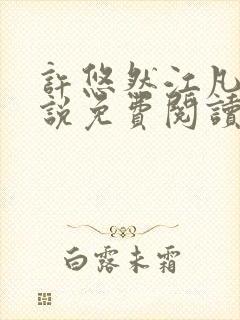 許悠然江凡
説免費閱讀
白露未霜